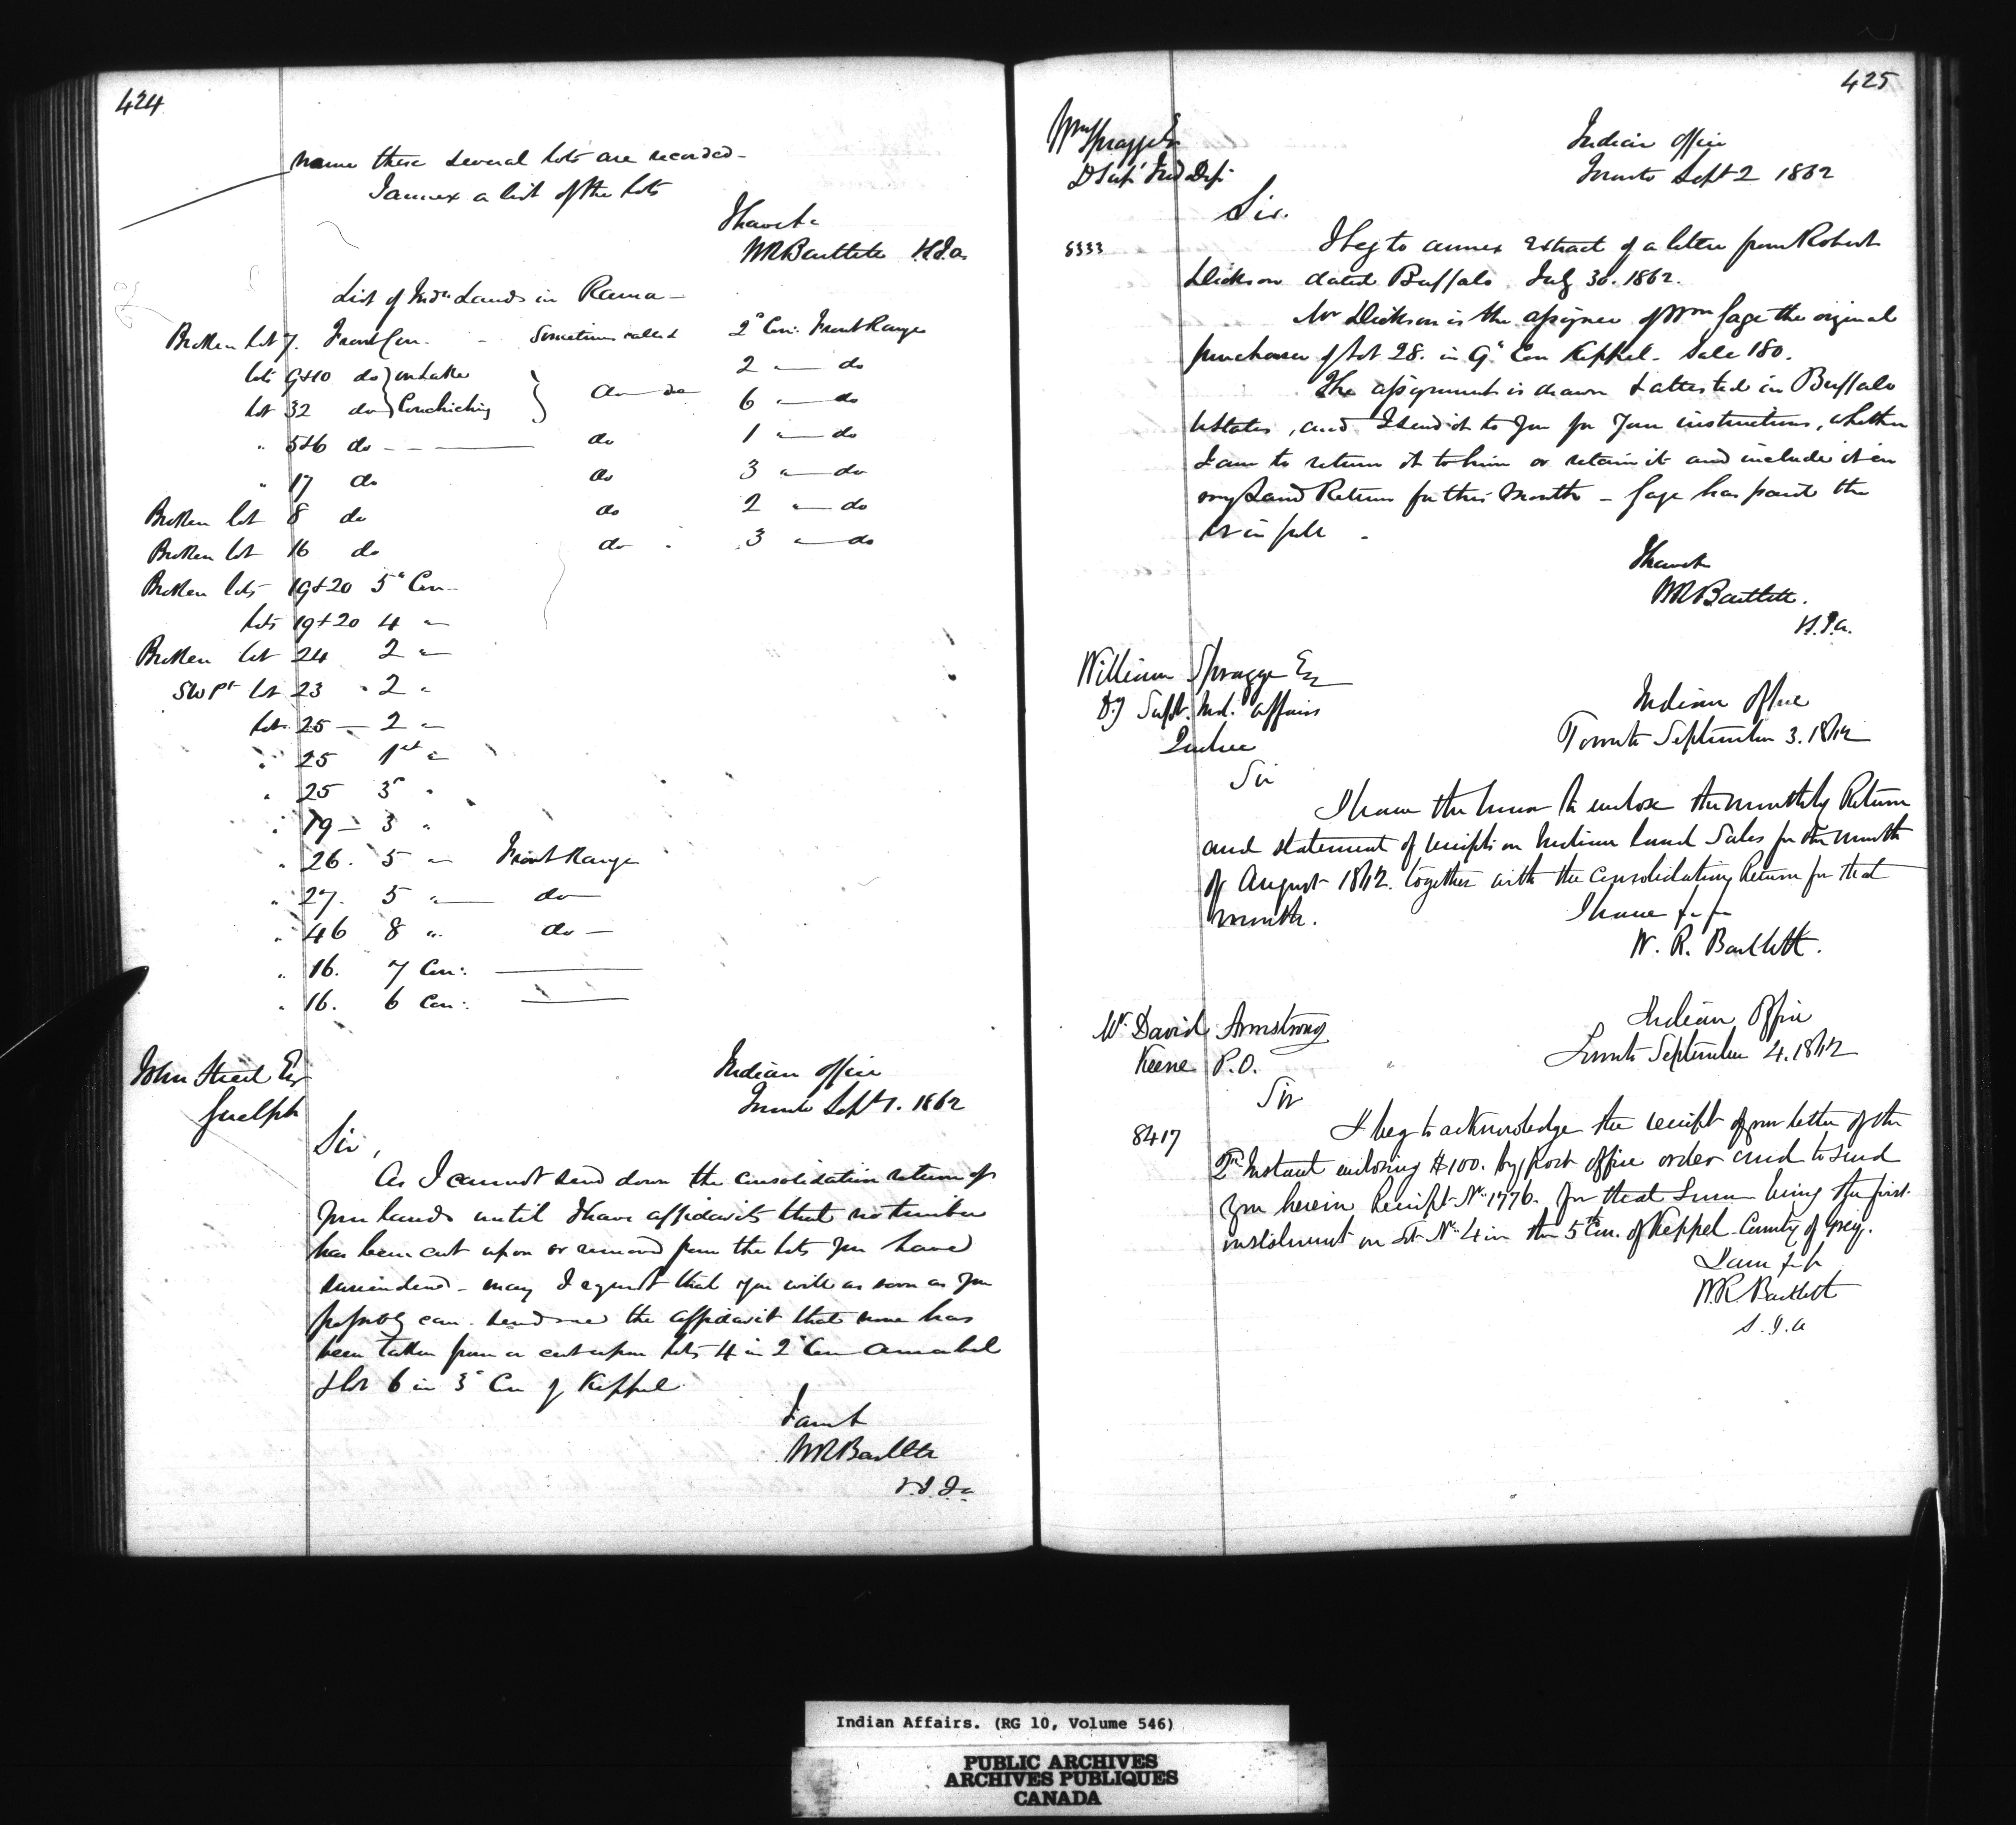 424
name these several lots are recorded -
I annex a list of the lots
I have &c
W R Bartlett V.S.I.a
List of Indn Lands in Rama -
Broken lot 7. Front Con. - Sometimes called 2d Con: Front Range
lots 9 & 10 do } on Lake 2 " do
lot 32 do } Couchiching } do do 6 " do
" 5 & 6 do - - do 1 " do
" 17 do do 3 " do
Broken lot 8 do do 2 " do
Broken lot 16 do do . 3 " do
Broken lots 19 & 20 5th Con -
lots 19 & 20 4 "
Broken lot 24 2 "
SW Pt lot 23 2 "
lot 25 - 2 "
" 25 1st "
" 25 3d "
" 19 - 3 "
" 26. 5 " Front Range
" 27. 5 " do
" 46 8 " do -
" 16. 7 Con:
" 16. 6 Con:
John Street Esq
Guelph
Indian Office
Toronto Sept 1. 1862
Sir,
As I cannot send down the consolidation return of
your lands until I have affidavits that no timber
has been cut upon or removed from the lots you have
surrendered - may I request that you will as soon as you
possibly can send me the affidavit that none has
been taken from or cut upon lots 4 in 2d Con Amabel
& lot 6 in 3d Con of Keppel
I am &c
W R Bartlett
425
Wm Spragge Esq
D Supt Ind Dept
Indian Office
Toronto Sept 2 1862
Sir.
8333
I beg to annex extract of a letter from Robert
Dickson dated Buffalo July 30. 1862.
Mr Dickson is the assignee of Wm Gage the original
purchaser of lot 28. in 9th Con Keppel - Sale 180.
The assignment is drawn & attested in Buffalo
U States, and I send it to you for your instructions, whether
I am to return it to him or retain it and include it in
my Land Return for this Month - Gage has paid the
lot in full .
I have &c
W R Bartlett.
V.S.I.a.
William Spragge Esq
Dy Supt. Ind. Affairs
Quebec
Indian Office
Toronto September 3. 1862
Sir
I have the honor to enclose the monthly Return
and statement of receipts on Indian Land Sales for the month
of August 1862. together with the Consolidation Return for that
month.
I have &c &c
W. R. Bartlett.
Mr. David Armstrong
Keene P.O.
Indian Office
Toronto September 4. 1862
Sir
8417
I beg to acknowledge the receipt of your letter of the
2d Instant enclosing $100. by post office order and to send
you herein Receipt No. 1776. for that Sum being the first
instalment on Lot No. 4 in the 5th Con. of Keppel County of Grey.
I am &c &c
W. R. Bartlett
S.I.A
Indian Affairs. (RG 10, Volume 546)
PUBLIC ARCHIVES
ARCHIVES PUBLIQUES
CANADA